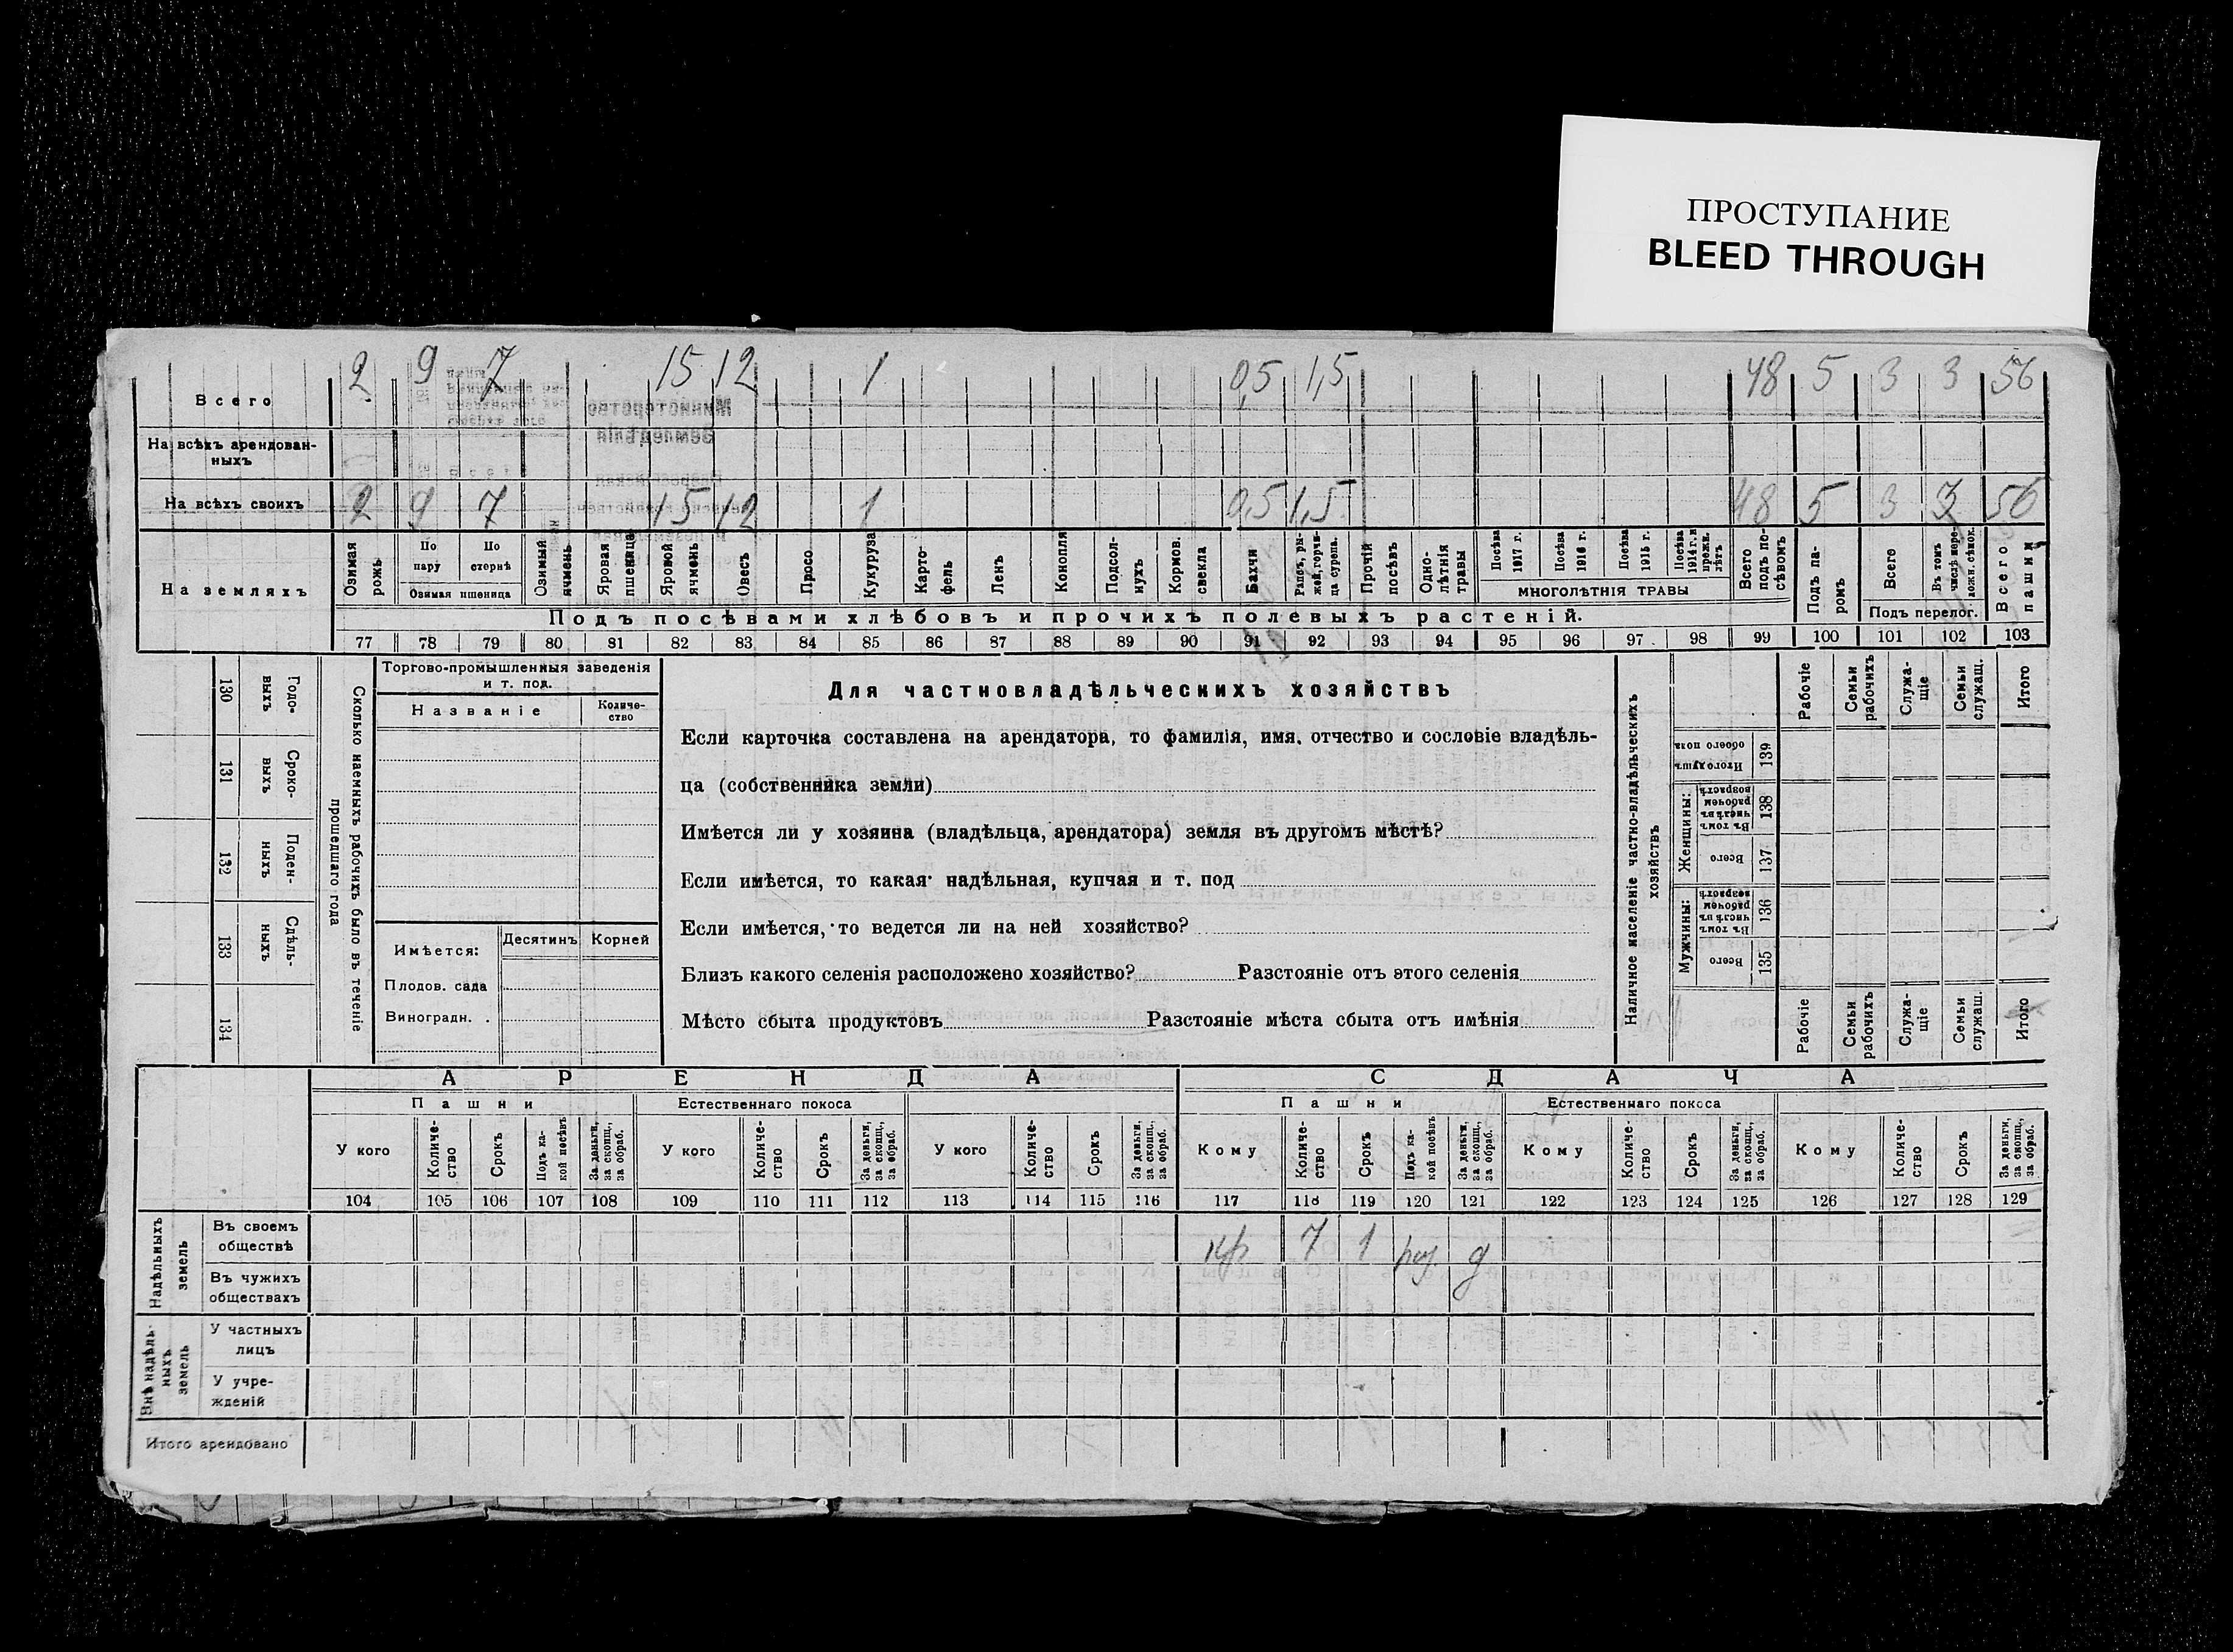 ПРОСТУПАНИЕ
BLEED THROUGH
Всего 2 9 7 15 12 1 0,5 1,5 48 5 3 3 56
На всѣхъ арендован-
ныхъ
На всѣхъ своихъ 2 9 7 15 12 1 0,5 1,5 48 5 3 3 56
На земляхъ
Озимая рожь
По пару
По стернѣ
Озимая пшеница
Озимый ячмень
Яровая пшеница
Яровой ячмень
Овесъ
Просо
Кукуруза
Карто-
фель
Ленъ
Конопля
Подсол-
нухъ
Кормов. свекла
Бахчи
Рапсъ, ры-
жей, горчи-
ца сурепа.
Прочій посѣвъ
Одно-
лѣтнія травы
Посѣва 1917 г.
Посѣва 1916 г.
Посѣва 1915 г.
Посѣва 1914 г. и прежн. лѣтъ
МНОГОЛѢТНІЯ ТРАВЫ
Всего подъ по-
сѣвомъ
Подъ па-
ромъ
Всего
Въ томъ числѣ пере-
ложн. сѣнок.
Подъ перелог.
Всего пашни
Подъ посѣвами хлѣбовъ и прочихъ полевыхъ растеній.
77 78 79 80 81 82 83 84 85 86 87 88 89 90 91 92 93 94 95 96 97 98 99 100 101 102 103
130 Годо-
выхъ
131 Сроко-
выхъ
132 Поден-
ныхъ
133 Сдѣль-
ныхъ
134
Сколько наемныхъ рабочихъ было въ теченіе
прошедшаго года
Торгово-промышленныя заведенія
и т. под.
Названіе
Количе-
ство
Имѣется:
Десятинъ
Корней
Плодов. сада
Виноградн. .
Для частновладѣльческихъ хозяйствъ
Если карточка составлена на арендатора, то фамилія, имя, отчество и сословіе владѣль-
ца (собственника земли)
Имѣется ли у хозяина (владѣльца, арендатора) земля въ другомъ мѣстѣ?
Если имѣется, то какая надѣльная, купчая и т. под
Если имѣется, то ведется ли на ней хозяйство?
Близъ какого селенія расположено хозяйство? Разстояніе отъ этого селенія
Мѣсто сбыта продуктовъ Разстояніе мѣста сбыта отъ имѣнія
Наличное населеніе частно-владѣльческихъ
хозяйствъ
Рабочіе
Семьи рабочихъ
Служа-
щіе
Семьи служащ.
Итого
Итого душъ обоего пола 139
Женщины:
Въ томъ числѣ въ рабочем возрастѣ 138
Всего 137
Мужчины:
Въ томъ числѣ въ рабочем возрастѣ 136
Всего 135
Рабочіе
Семьи рабочихъ
Служа-
щіе
Семьи служащ.
Итого
АРЕНДА
СДАЧА
Пашни
Естественнаго покоса
Пашни
Естественнаго покоса
У кого
Количе-
ство
Срокъ
Подъ ка-
кой посѣвъ
За деньги, за скопщ., за обраб.
У кого
Количе-
ство
Срокъ
За деньги, за скопщ., за обраб.
У кого
Количе-
ство
Срокъ
За деньги, за скопщ., за обраб.
Кому
Количе-
ство
Срокъ
Подъ ка-
кой посѣвъ
За деньги, за скопщ., за обраб.
Кому
Количе-
ство
Срокъ
За деньги, за скопщ., за обраб.
Кому
Количе-
ство
Срокъ
За деньги, за скопщ., за обраб.
104 105 106 107 108 109 110 111 112 113 114 115 116 117 118 119 120 121 122 123 124 125 126 127 128 129
Надѣльныхъ
земель
Въ своемъ
обществѣ
кр 7 1 д
Въ чужихъ
обществахъ
Внѣ надѣль-
ныхъ
земель
У частныхъ
лицъ
У учре-
жденій
Итого арендовано